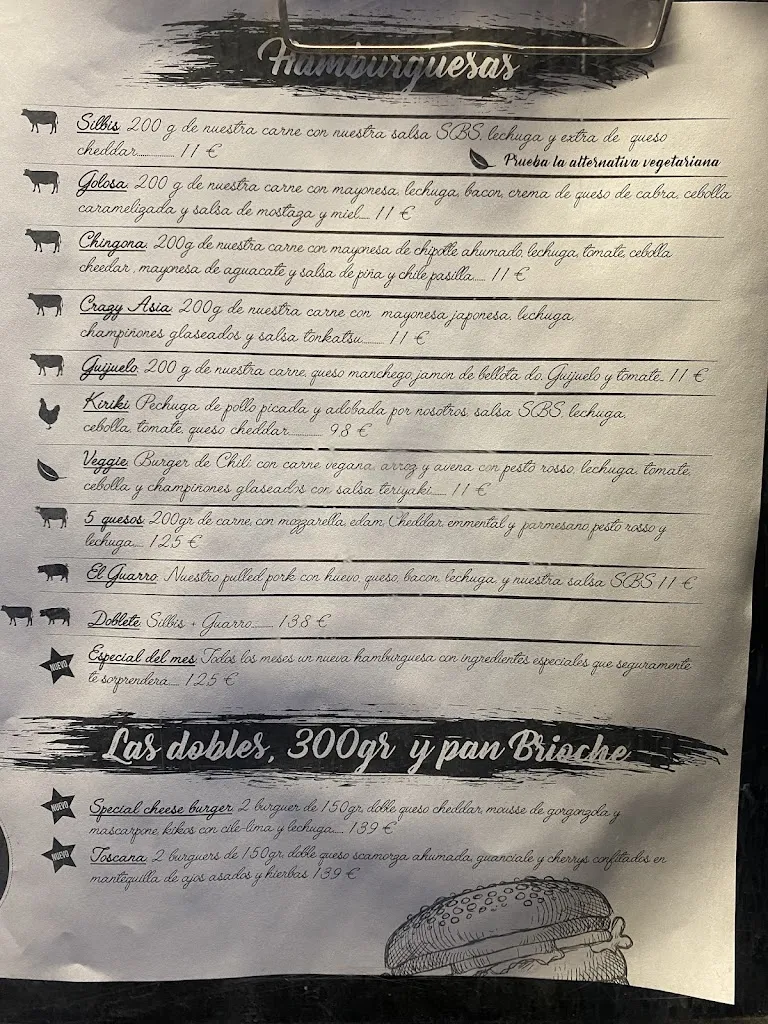 Hamburguesas
Silbis. 200 g de nuestra carne con nuestra salsa SBS, lechuga y extra de queso
cheddar............ 11 €
Prueba la alternativa vegetariana
Golosa. 200 g de nuestra carne con mayonesa, lechuga, bacon, crema de queso de cabra, cebolla
caramelizada y salsa de mostaza y miel.... 11 €
Chingona. 200g de nuestra carne con mayonesa de chipotle ahumado, lechuga, tomate, cebolla
cheedar , mayonesa de aguacate y salsa de piña y chile pasilla..... 11 €
Crazy Asia. 200g de nuestra carne con mayonesa japonesa, lechuga,
champiñones glaseados y salsa tonkatsu....... 11 €
Guijuelo. 200 g de nuestra carne, queso manchego, jamon de bellota do. Guijuelo y tomate.. 11 €
Kiriki. Pechuga de pollo picada y adobada por nosotros, salsa SBS, lechuga,
cebolla, tomate, queso cheddar........... 9.8 €
Veggie. Burger de Chili con carne vegana, arroz y avena con pesto rosso, lechuga, tomate,
cebolla y champiñones glaseados con salsa teriyaki..... 11 €
5 quesos. 200gr de carne, con mozzarella, edam, Cheddar, emmental y parmesano, pesto rosso y
lechuga.... 12.5 €
El Guarro. Nuestro pulled pork con huevo, queso, bacon, lechuga, y nuestra salsa SBS 11 €
Doblete. Silbis + Guarro....... 13.8 €
NUEVO
Especial del mes. Todos los meses un nueva hamburguesa con ingredientes especiales que seguramente
te sorprendera.... 12.5 €
Las dobles, 300gr y pan Brioche
NUEVO
Special cheese burger. 2 burguer de 150gr, doble queso cheddar, mousse de gorgonzola y
mascarpone, kikos con cile-lima y lechuga.... 13.9 €
NUEVO
Toscana. 2 burguers de 150gr, doble queso scamorza ahumada, guanciale y cherrys confitados en
mantequilla de ajos asados y hierbas 13.9 €